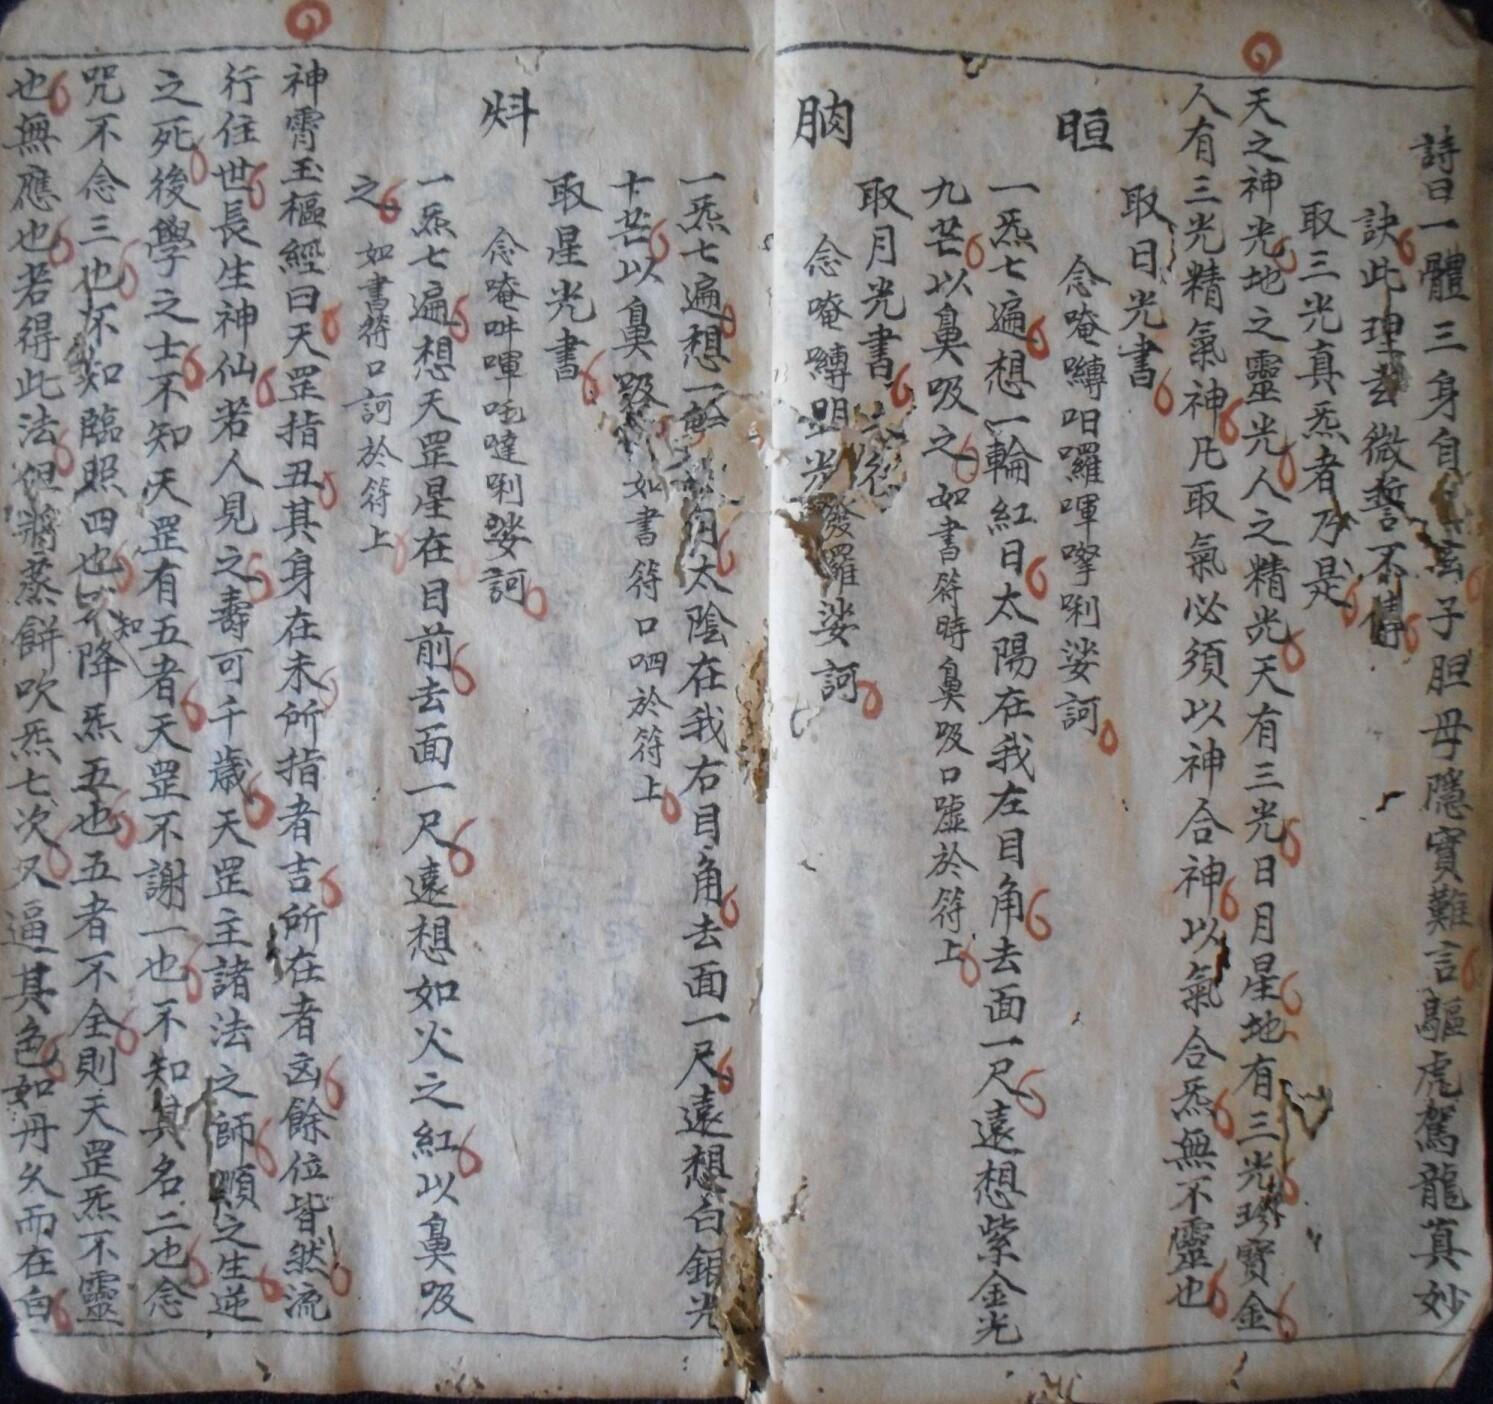 詩曰一體三身自玄子胆母隱實難言驅虎駕龍真妙
訣此理玄微誓不傳
取三光真炁者乃是
天之神光地之靈光人之精光天有三光日月星地有三光珍寶金
人有三光精氣神凡取氣必須以神合神以氣合炁無不靈也
取日光書
晅
念唵囀呬囉㖇嚀唎娑訶
一炁七遍想一輪紅日太陽在我左目角去面一尺遠想紫金光
九芒以鼻吸之如書符時鼻吸口噓於符上
取月光書
念唵囀明光發羅娑訶
一炁七遍想一月太陰在我右目角去面一尺遠想白銀光
十芒以鼻吸如書符口呬於符上
取星光書
念唵吽㖇吒噠唎娑訶
一炁七遍想天罡星在目前去面一尺遠想如火之紅以鼻吸
之如書符口訶於符上
神霄玉樞經曰天罡指丑其身在未所指者吉所在者凶餘位皆然流
行住世長生神仙若人見之壽可千歲天罡主諸法之師順之生逆
之死後學之士不知天罡有五者天罡不謝一也不知其名二也念
咒不念三也不知臨照四也不知降炁五也五者不全則天罡炁不靈
也無應也若得此法但將蒸餅吹炁七次又逼其色如丹久而在白